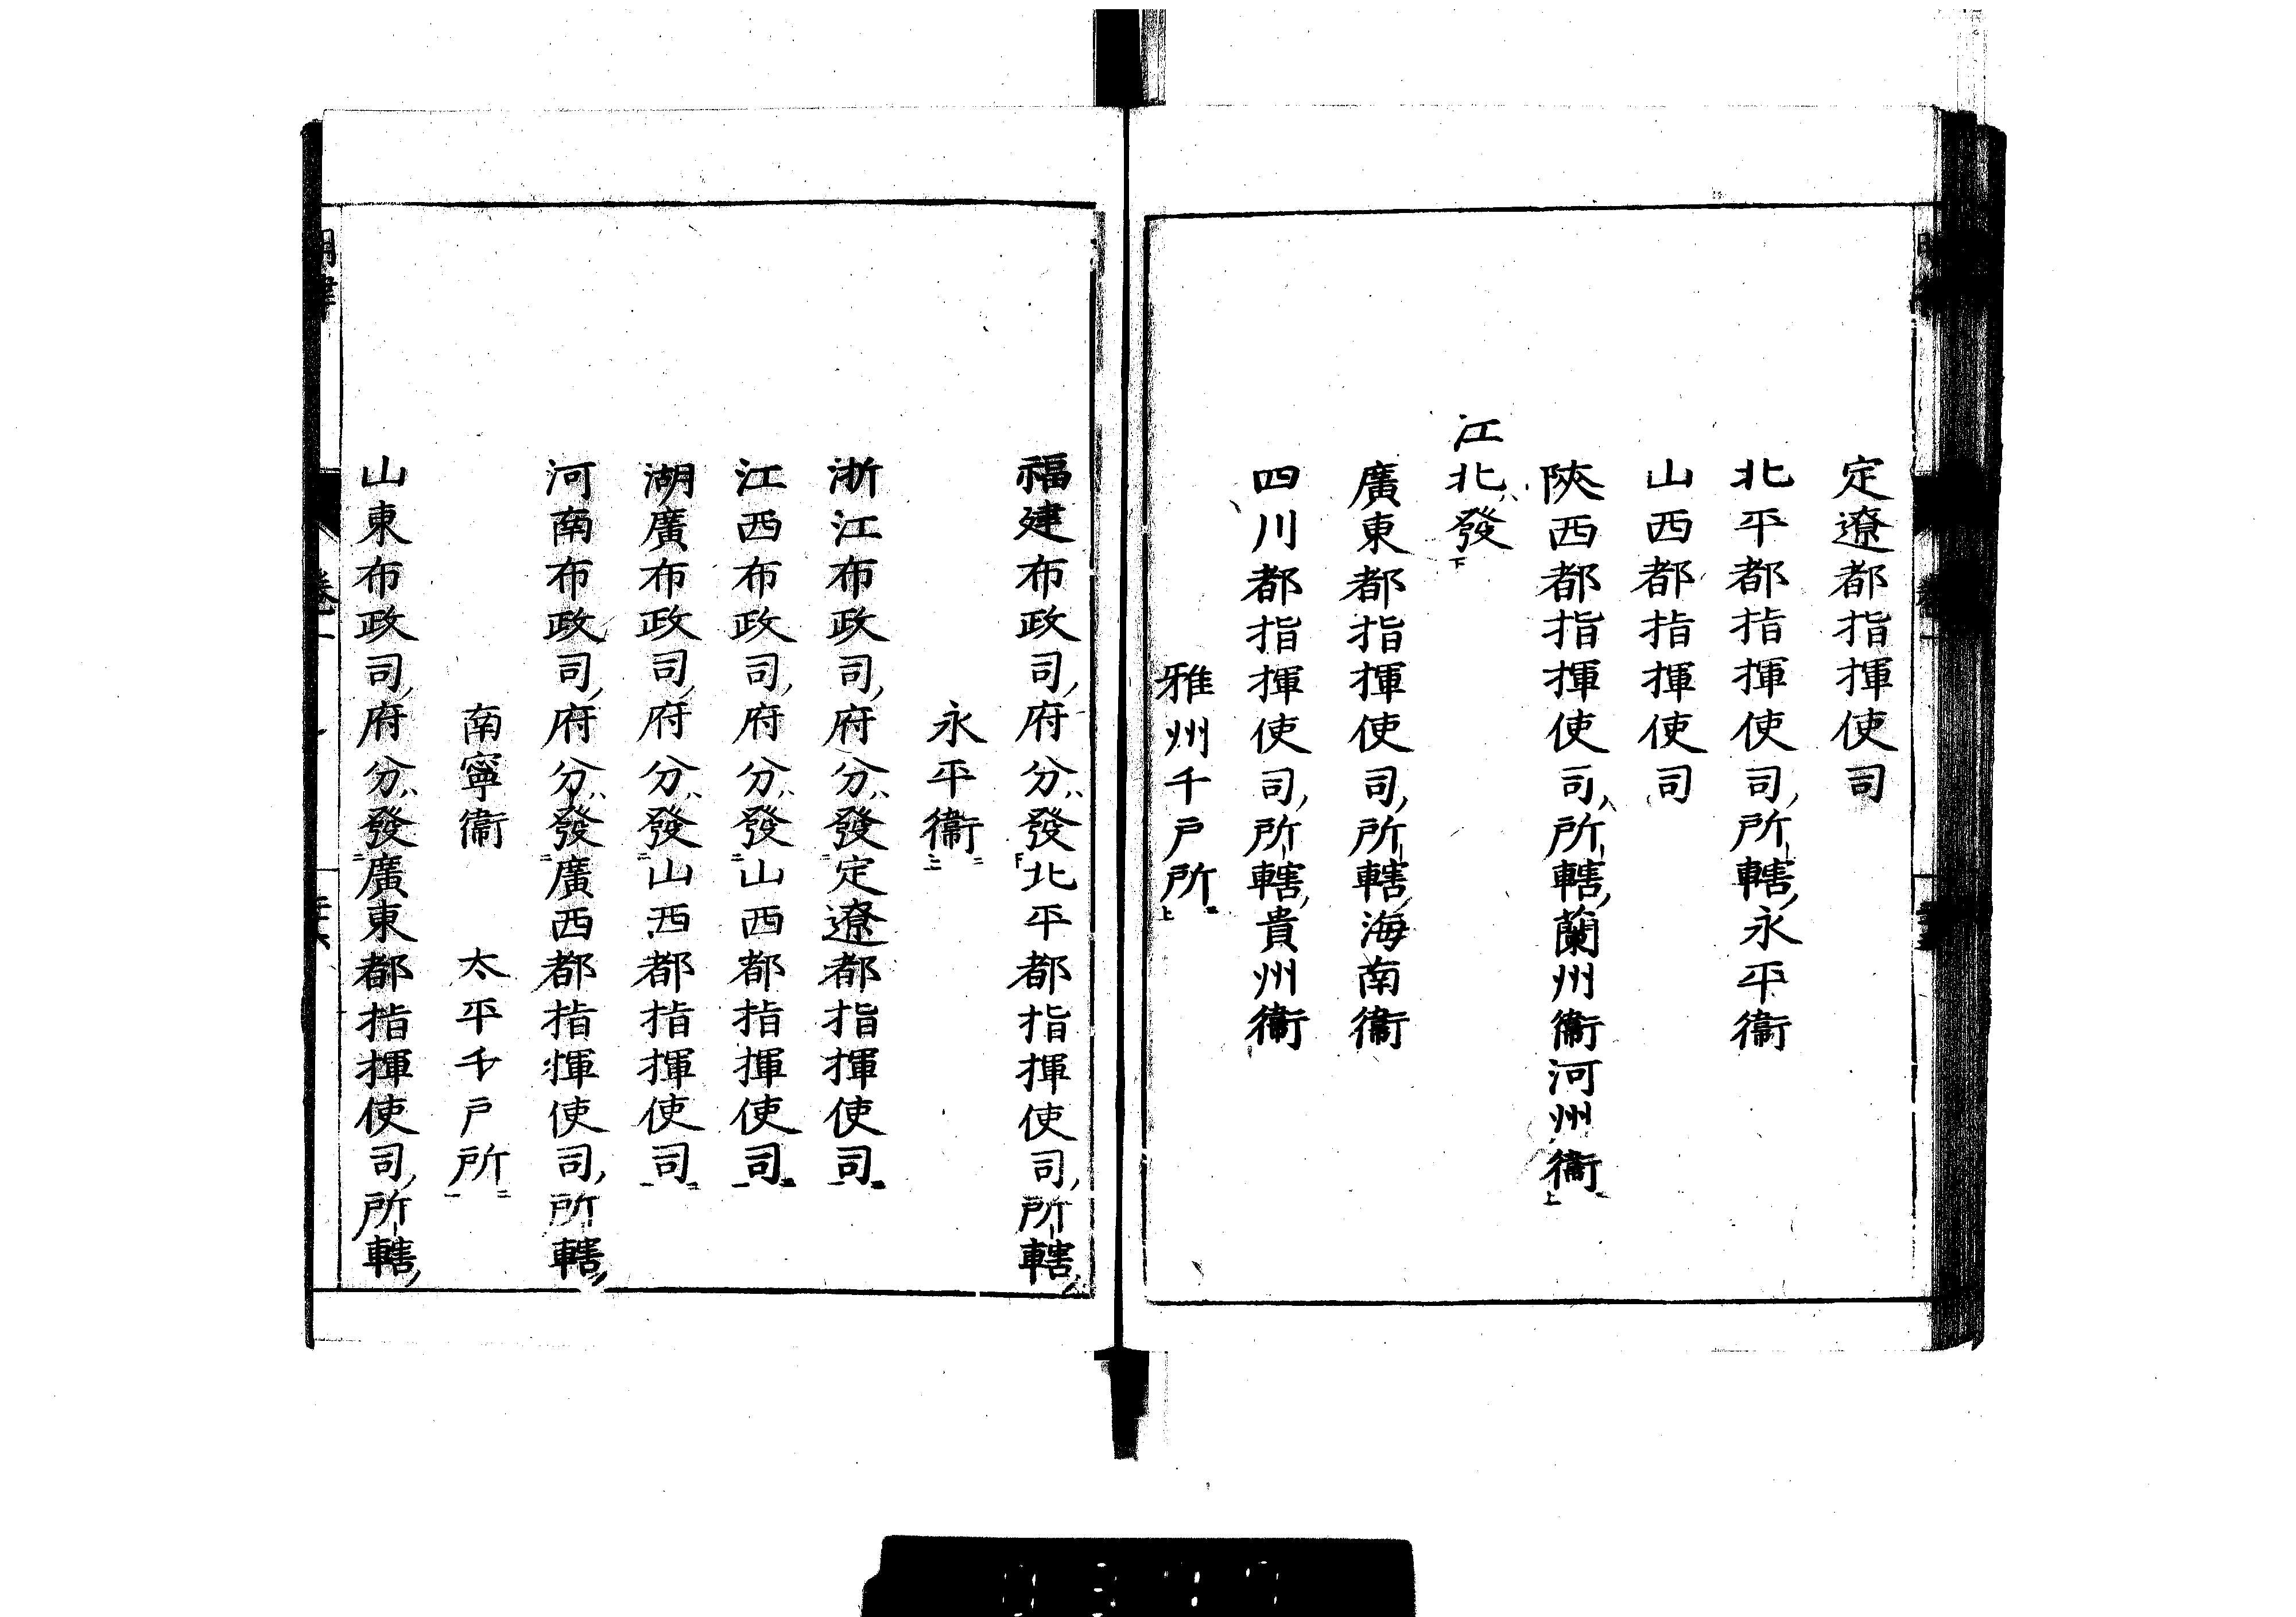 定遼都指揮使司
北平都指揮使司所轄永平衞
山西都指揮使司
陜西都指揮使司所轄蘭州衞河州衞
江北發
廣東都指揮使司所轄海南衞
四川都指揮使司所轄貴州衞
雅州千戸所
福建布政司府分發北平都指揮使司所轄
永平衞
浙江布政司府分發定遼都指揮使司
江西布政司府分發山西都指揮使司
湖廣布政司府分發山西都指揮使司
河南布政司府分發廣西都指揮使司所轄
南寧衞 太平千戸所
山東布政司府分發廣東都指揮使司所轄